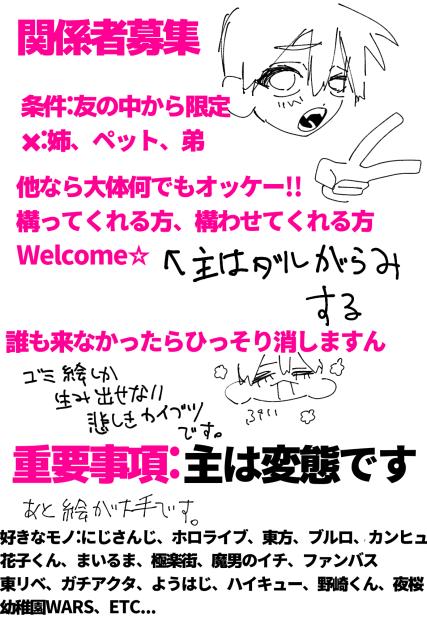 関係者募集
条件:友の中から限定
✖:姉、ペット、弟
他なら大体何でもオッケー!!
構ってくれる方、構わせてくれる方
Welcome☆
↖主はダルがらみ
する
誰も来なかったらひっそり消しますん
ゴミ絵しか
生み出せない
悲しきカイブツ
です。
重要事項:主は変態です
あと絵が大手です。
好きなモノ:にじさんじ、ホロライブ、東方、ブルロ、カンヒュ
花子くん、まいるま、極楽街、魔男のイチ、ファンパス
東リベ、ガチアクタ、ようはじ、ハイキュー、野崎くん、夜桜
幼稚園WARS、ETC...